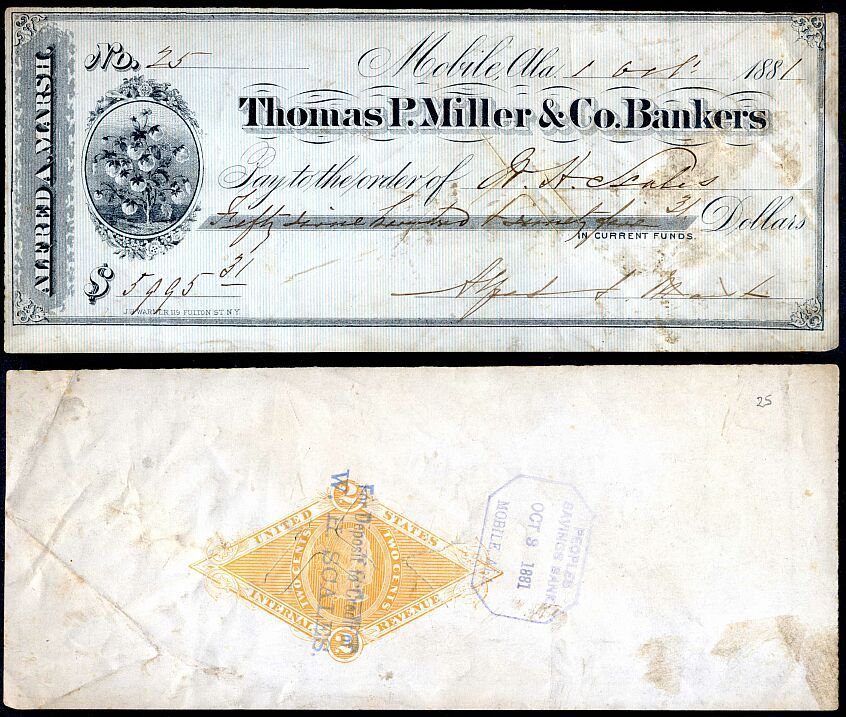 ALFRED A. MARSH.
No. 25
Mobile, Ala. 1 Oct. 1881
Thomas P. Miller & Co. Bankers
Pay to the order of W. H. Scales
Fifty nine hundred & ninety five 31 Dollars
IN CURRENT FUNDS.
$ 5995 31
Alfred A. Marsh
J W WARNER 119 FULTON ST N Y
25
UNITED STATES
TWO CENTS
TWO CENTS
INTERNAL REVENUE
2
2
For Deposit to Credit of
W. H. SCALES.
PEOPLES
SAVINGS BANK
OCT 3 1881
MOBILE, ALA.